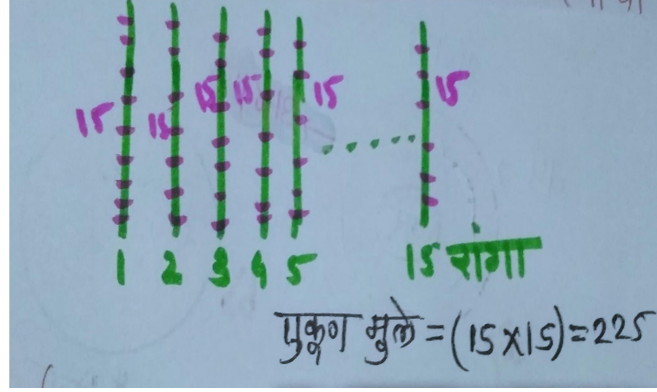 15 15 15 15 15 15
1 2 3 4 5 15 रांगा
एकूण मुले = (15×15) = 225